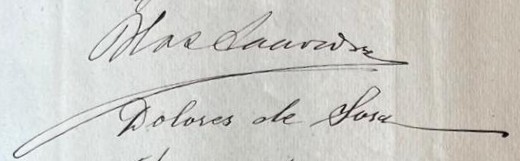 Blas
Dolores de Sosa